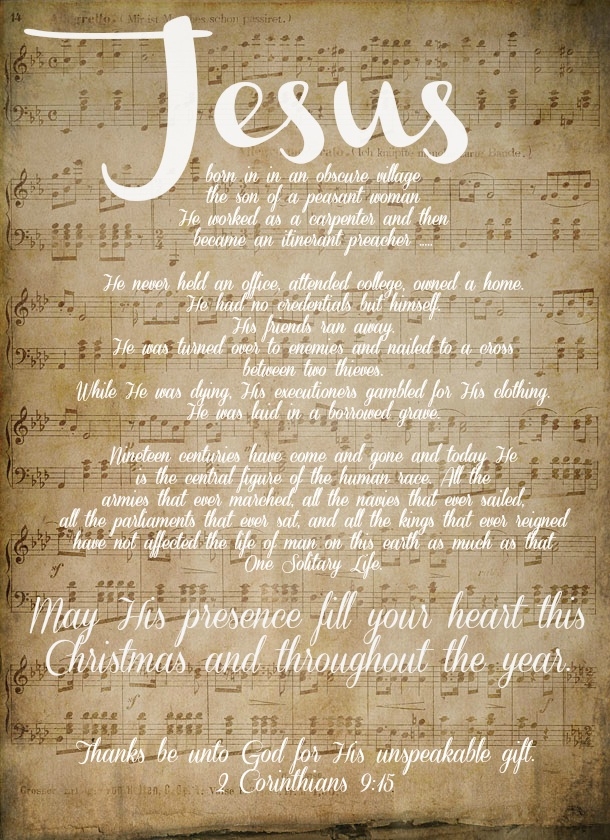 14
Allegretto. (Mir ist
schon passiret.)
Jesus
(Ich knüpfte manche zarte Bande.)
born in in an obscure village
the son of a peasant woman
He worked as a carpenter and then
became an itinerant preacher .....
He never held an office, attended college, owned a home.
He had no credentials but himself.
His friends ran away.
He was turned over to enemies and nailed to a cross
between two thieves.
While He was dying, His executioners gambled for His clothing.
He was laid in a borrowed grave.
Nineteen centuries have come and gone and today He
is the central figure of the human race. All the
armies that ever marched, all the navies that ever sailed,
all the parliaments that ever sat, and all the kings that ever reigned
have not affected the life of man on this earth as much as that
One Solitary Life.
sf
May His presence fill your heart this
Christmas and throughout the year.
sf
Thanks be unto God for His unspeakable gift.
2 Corinthians 9:15